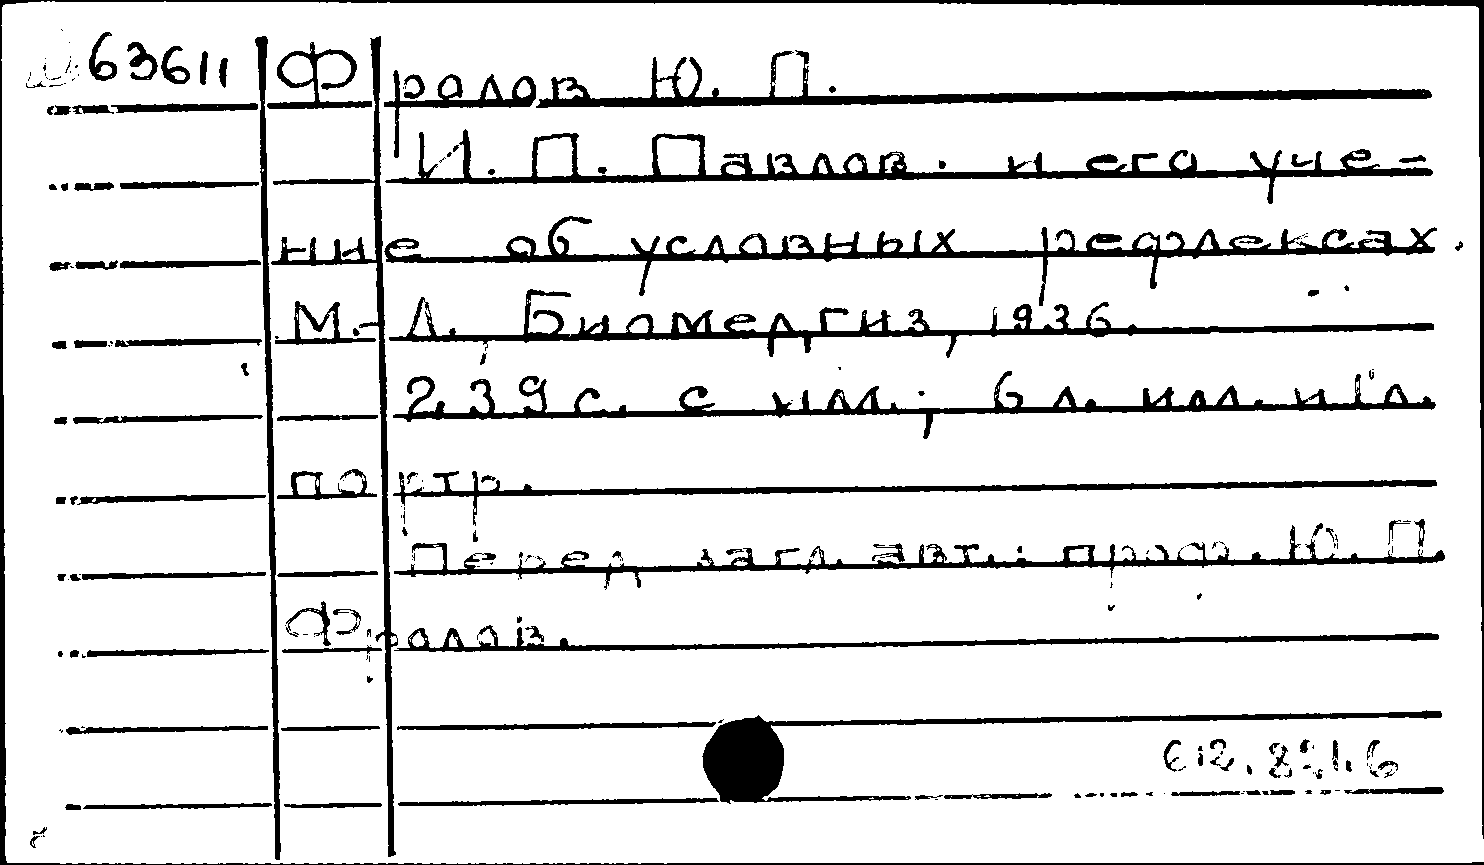 63611 Фролов Ю. П.
И. П. Павлов. и его уче-
ние об условных рефлексах.
М.-Л., Биомедгиз, 1936.
239 с. с илл.; 6 л. илл. и 1 л.
портр.
Перед загл. авт.: проф. Ю. П.
Фролов.
612.821.6